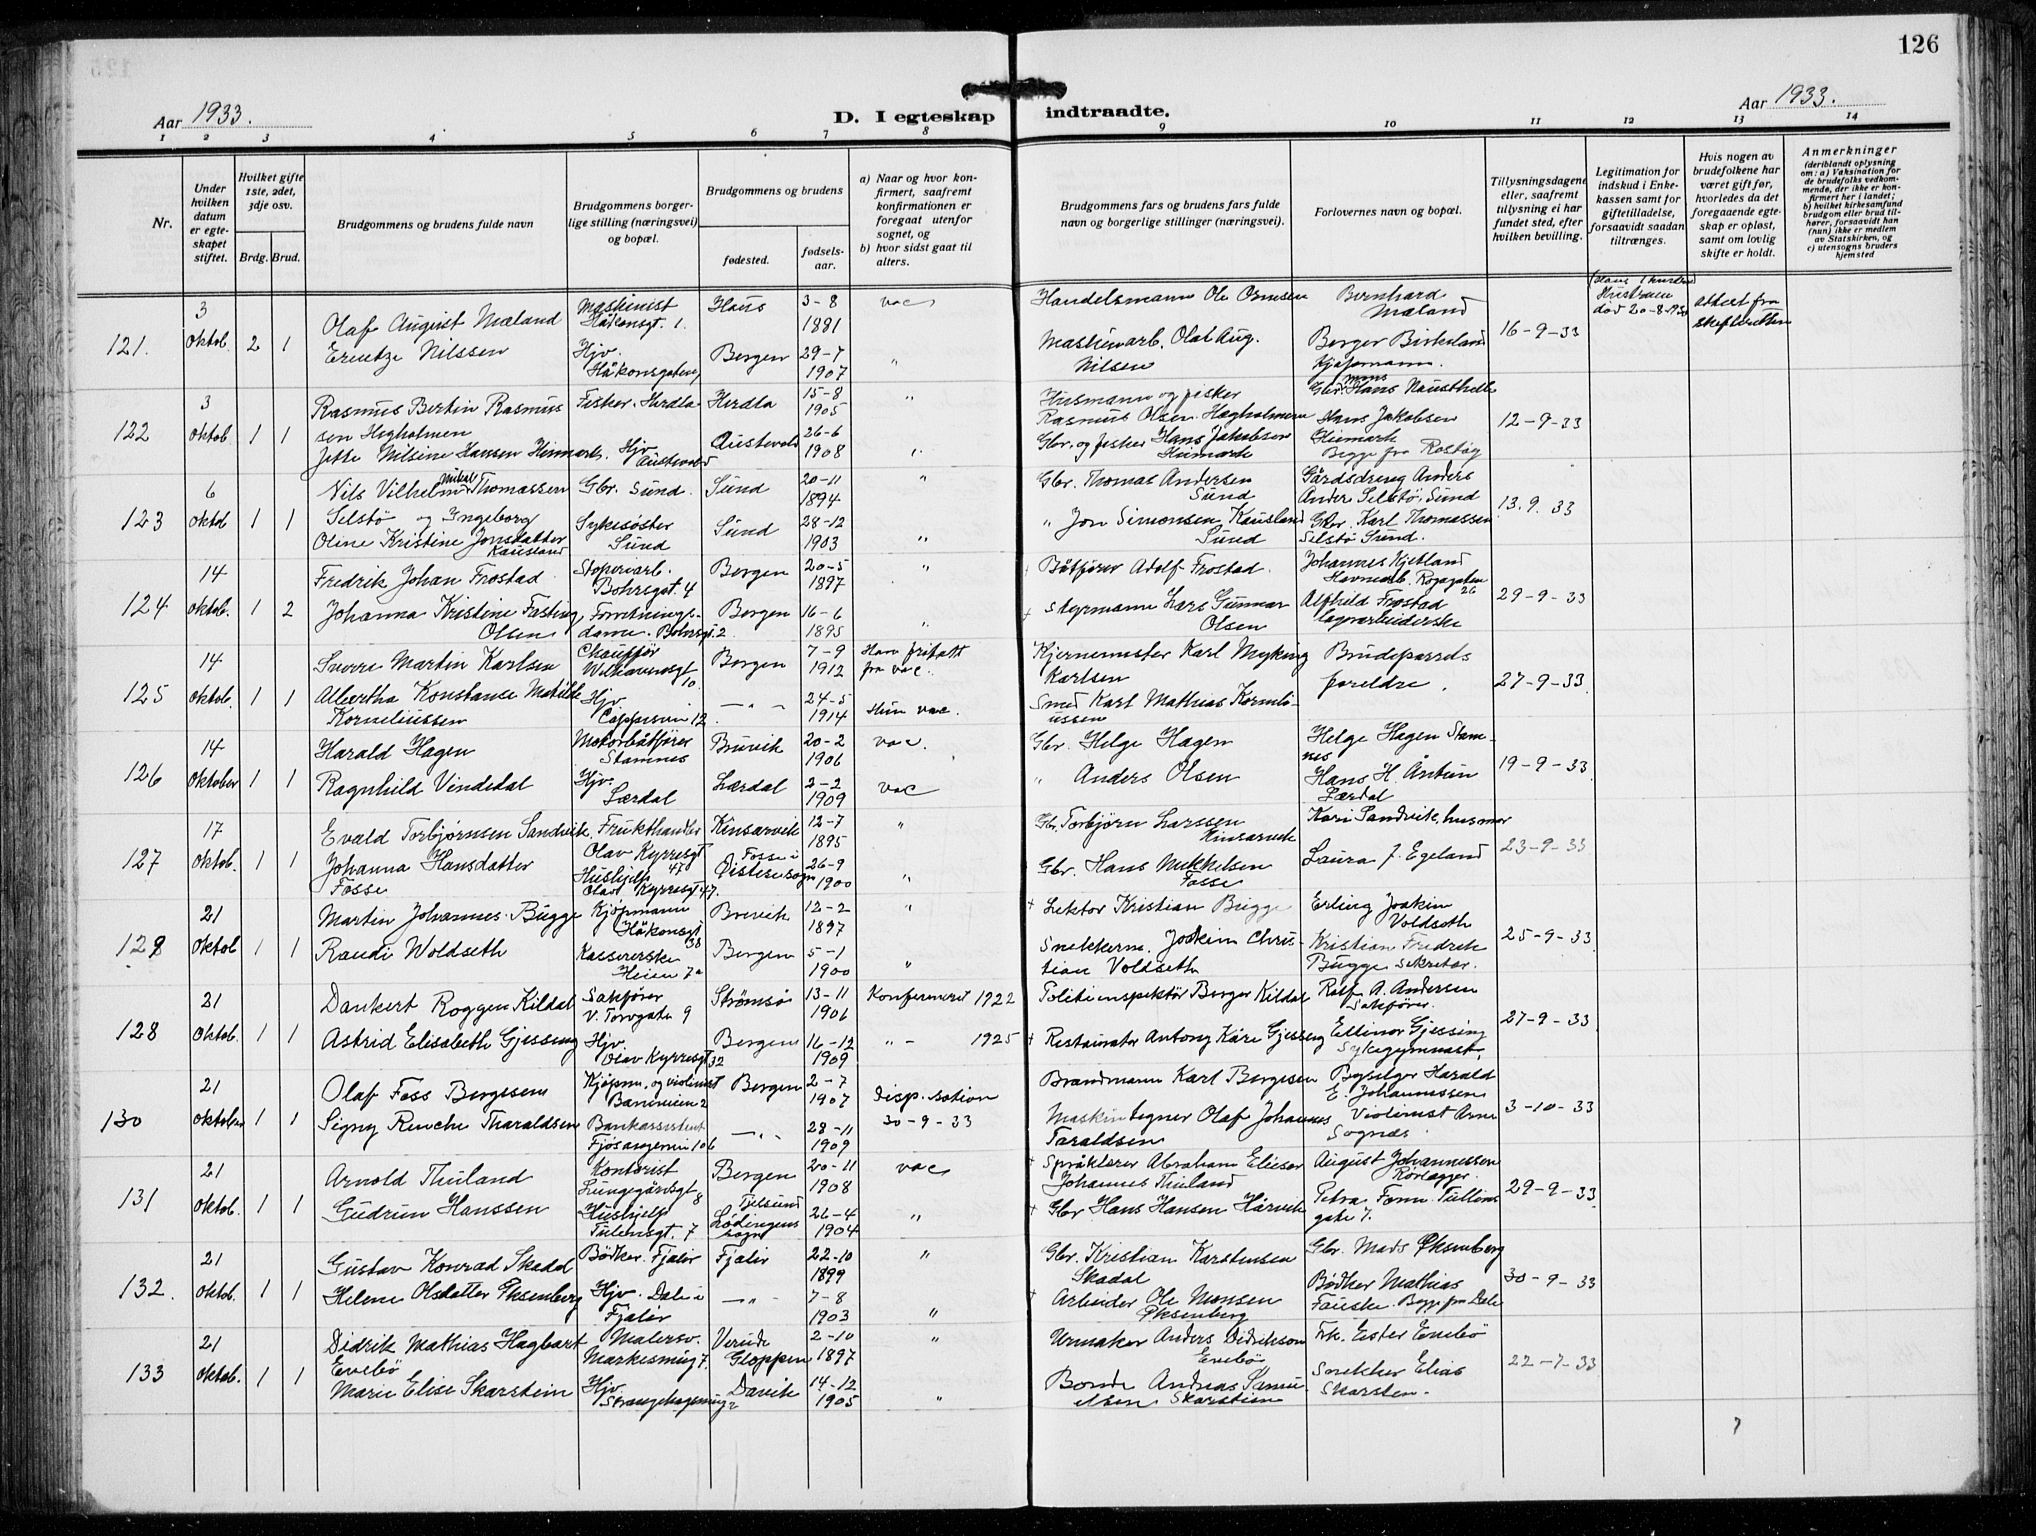 126
Aar 1933.
D. I egteskap indtraadte.
Aar 1933.
1 2 3 4 5 6 7 8 9 10 11 12 13 14
Nr.
Under hvilken datum er egteskapet stiftet.
Hvilket gifte 1ste, 2det, 3dje osv.
Brdg. Brud.
Brudgommens og brudens fulde navn
Brudgommens borgerlige stilling (næringsvei) og bopæl.
Brudgommens og brudens
fødested.
fødselsaar.
a) Naar og hvor konfirmert, saafremt konfirmationen er foregaat utenfor sognet, og
b) hvor sidst gaat til alters.
Brudgommens fars og brudens fars fulde navn og borgerlige stillinger (næringsvei).
Forlovernes navn og bopæl.
Tillysningsdagene eller, saafremt tillysning ei har fundet sted, efter hvilken bevilling.
Legitimation for indskud i Enkekassen samt for giftetilladelse, forsaavidt saadan tiltrænges.
Hvis nogen av brudefolkene har været gift før, hvorledes da det foregaaende egteskap er opløst, samt om lovlig skifte er holdt.
Anmerkninger
(deriblandt oplysning om: a) Vaksination for de brudefolks vedkommende, der ikke er konfirmert her i landet; b) hvilket kirkesamfund brudgom eller brud tilhører, forsaavidt han (hun) ikke er medlem av Statskirken, og c) utensogns bruders hjemsted
121. 3 Oktob. 2 1
Olaf August Mæland Maskinist Håkonsgt. 1. Haus 3-8 1881 vac
Handelsmann Ole Bernhard Mæland
Hustruen død 20-8-
Attest fra skifteretten
Nilssen Hjv. Håkonsgaten Bergen 29-7 1907 "
Maskinarb. Olaf Aug. Nilsen Berger Birkeland Kjøpmann. 16-9-33
122 3 Oktob. 1 1
Rasmus Bertin Rasmussen Hegholmen Fisker. Herdla Herdla 15-8 1905 "
Husmann og fisker Rasmus Olsen Gbr. Hans
Jette Nilsine Hansen Hjv. Austevold Austevold 26-6 1908 "
Gbr. og fisker Hans Jakobsen Hans Jakobsen Begge fra Rostøy 12-9-33
123 6 Oktob 1 1
Nils Vilhelm Mikal Thomassen Selstø og Gbr. Sund. Sund 20-11 1894 "
Gbr. Thomas Andersen Sund Gårdsdreng Anders Selstø, Sund
Ingeborg Oline Kristine Jonsdatter Kausland Sykesøster Sund Sund 28-12 1903 "
" Jon Simonsen Kausland Sund Gbr. Karl Thomassen Selstø Sund. 13.9.33
124 14 Oktob. 1 2
Fredrik Johan Frostad Bohrsgt. 4 Bergen 20-5 1897 "
Båtfører Adolf Frostad. Johannes Kjetland Havnearb.
Johanna Kristine Fasting Olsen Forretningsdame. Bohrsgt. 2 Bergen 16-6 1895 "
Styrmann Lars Gunnar Olsen Alfhild Frostad lagerarbeiderske 29-9-33
125 14 Oktob. 1 1
Sverre Martin Karlsen Chauffør 10. Bergen 7-9 1912 Han fritatt fra vac.
Kjernemester Karl Myking Karlsen Brudeparrets foreldre.
Albertha Konstanse Matilde Korneliussen Hjv. 12. —"— 24-5 1914 Hun vac.
Smed Karl Mathias Korneliussen 27-9-33.
126 14 Oktober 1 1
Harald Hagen Motorbåtfører Stamnes Bruvik 20-2 1906 vac.
Gbr. Helge Hagen Helge Hagen Stamnes
Ragnhild Vindedal Hjv. Lærdal Lærdal 2-2 1909 vac
" Anders Olsen Hans H. Lærdal 19-9-33.
127 17 Oktob. 1 1
Evald Torbjørnsen Sandvik, Frukthandler Olav Kyrresgt 47 Kinsarvik 12-7 1895 "
Gbr. Torbjørn Larssen Kinsarvik Kari Sandvik, husmor
Johanna Hansdatter Fosse Hushjelp Olav Kyrresgt 47. Fosse i Østesesogn 26-9 1900 "
Gbr. Hans Mikkelsen Fosse Laura J. Egeland 23-9-33
129 21 Oktob 1 1
Martin Johannes Bugge Kjøpmann Håkonsgt 38 Brevik 12-2 1897 "
+ Lektor Kristian Bugge Erling Joakim Voldseth
Randi Woldseth Kassererske Heien 7a Bergen 5-1 1900 "
Snekkerm. Joakim Christian Voldseth Kristian Fredrik Bugge, sekretær. 25-9-33.
128 21 Oktob. 1 1
Dankert Roggen Kildal Sakfører V. Torvgate 9 Strømsø 13-11 1906 Konfirmert 1922
Politiinspektør Berger Kildal Rolf A. Andersen Sakfører.
Astrid Elisabeth Gjessing Hjv. Olav Kyrresgt 32 Bergen 16-12 1909 " – 1925
+ Restauratør Antony Kåre Gjessing Ellinor Gjessing Sykegymnast. 27-9-33.
130 21 Oktober 1 1
Olaf Foss Bergesen Kjøpm. og violinist 2 Bergen 2-7 1907 Dispensation
Brandmann Karl Bergesen Harald E. Johannessen
Signy Renche Tharaldsen Bankassistent 106 —"— 28-11 1909 30-9-33
Maskintegner Olaf Johannes Taraldsen Violinist Arne Sognæs. 3-10-33
131 21 Oktob. 1 1
Arnold Thuland Kontorist Lungegårdsgt 8 Bergen 20-11 1908 vac
+ Språklærer Abraham Elieser Johannes Thuland August Johannessen Rørlegger.
Gudrun Hanssen Hushjelp 7 Tjelsund Lødingens sogn 26-4 1904 "
+ Gbr Hans Hansen Hårvik Petra gate 7. 29-9-33.
132. 21 Oktob. 1 1
Gustav Konrad Skadal Bødker. Fjaler Fjaler 22-10 1899 "
Gbr. Kristian Karstensen Skadal Gbr. Mads Øksenberg
Helene Olsdatter Øksenberg Hjv. Dale i Fjaler —"— 7-8 1903 "
+ Arbeider Ole Monsen Øksenberg Bødker Mathias Fauske. Begge fra Dale 30-9-33
133 21 Oktob. 1 1
Didrik Mathias Hagbart Evebø Malersv. 7. Gloppen 2-10 1897 "
Urmaker Anders Didrikson Evebø Frk. Ester Evebø
Marie Elise Skarstein Hjv. Davik 14-12 1905 "
Bonde Andreas Samuelsen Skarstein Snekker Elias Skarsten. 22-7-33